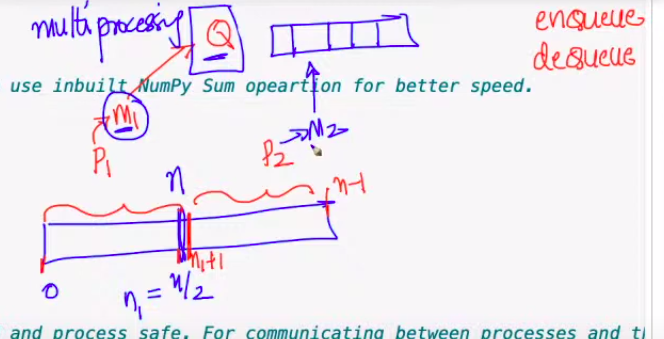 multiprocessing Q enqueue
dequeue
use inbuilt NumPy Sum opeartion for better speed.
m1 M2
P1 P2
n n-1
n1+1
0 n1 = n/2
and process safe. For communicating between processes and th